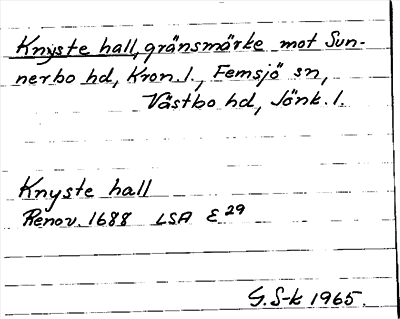 Knyste hall, gränsmärke mot Sun-
nerbo hd, Kron. l., Femsjö sn,
Västbo hd, Jönk. l.
Knyste hall
Renov. 1688 LSA E 29
G. S-k 1965.